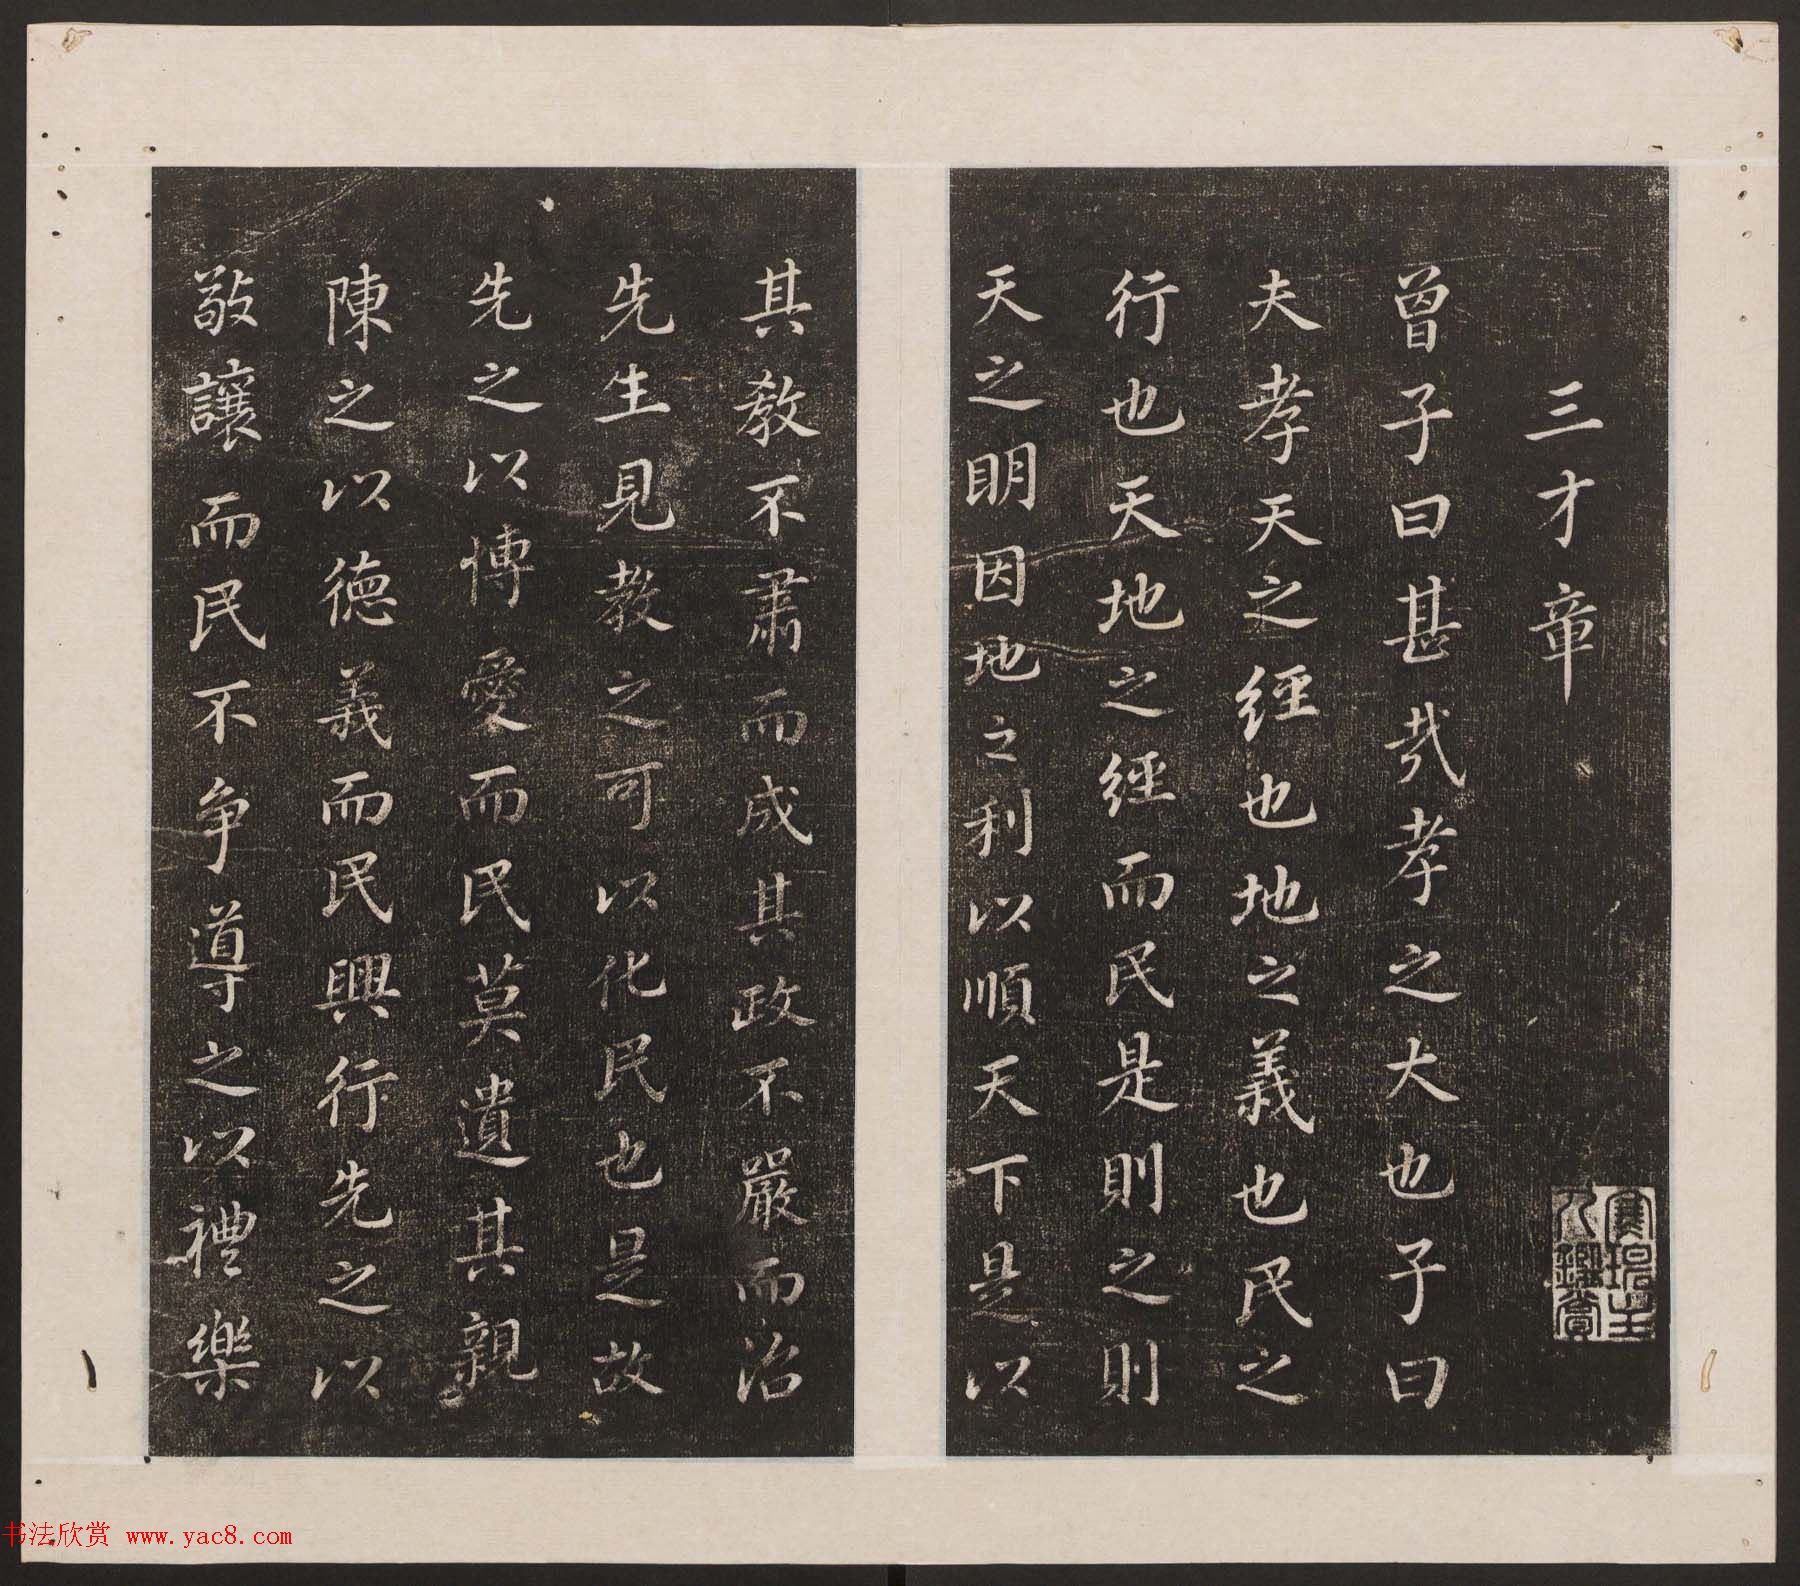 三才章
曾子曰甚哉孝之大也子曰
夫孝天之經也地之義也民之
行也天地之經而民是則之則
天之明因地之利以順天下是以
其教不肅而成其政不嚴而治
先生見教之可以化民也是故
先之以博愛而民莫遺其親
陳之以德義而民興行先之以
敬讓而民不爭導之以禮樂
书法欣赏 www.yac8.com